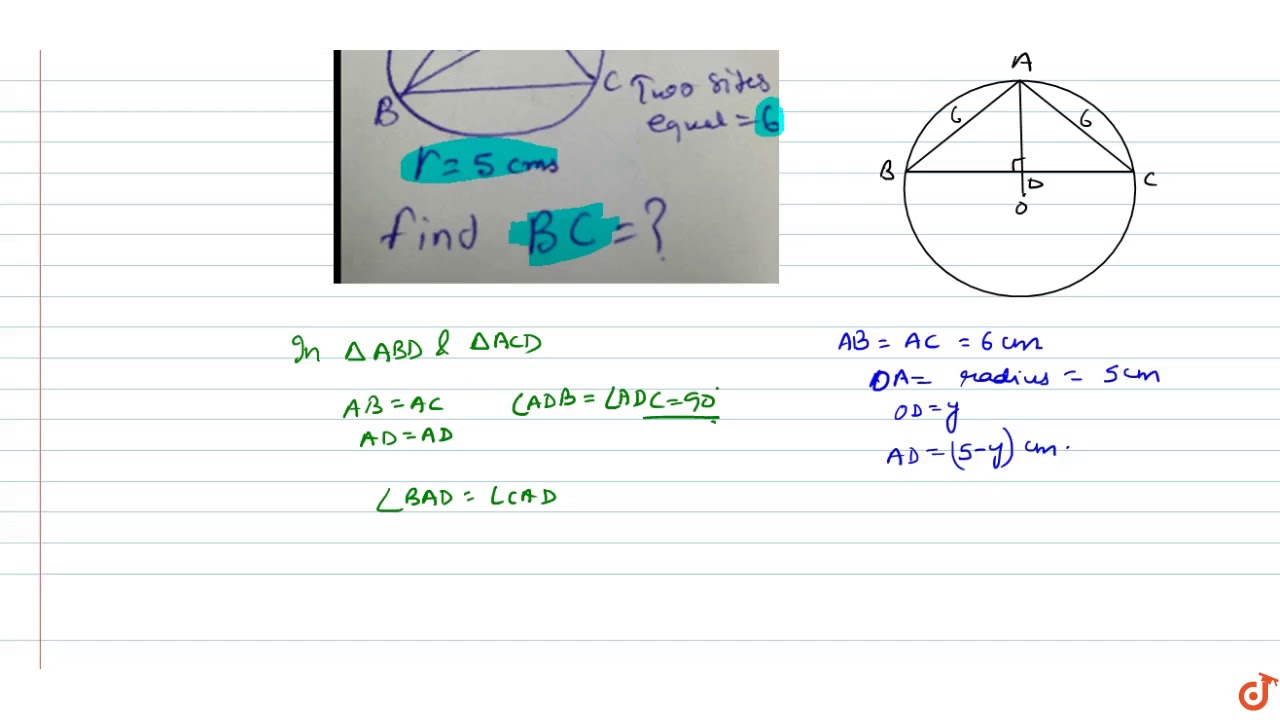 B
C
Two sites
equal = 6
r = 5 cms
find BC = ?
A
6
6
B
D
C
O
In △ABD & △ACD
AB = AC
∠ADB = ∠ADC = 90°
AD = AD
∠BAD = ∠CAD
AB = AC = 6 cm
OA = radius = 5 cm
OD = y
AD = (5-y) cm.